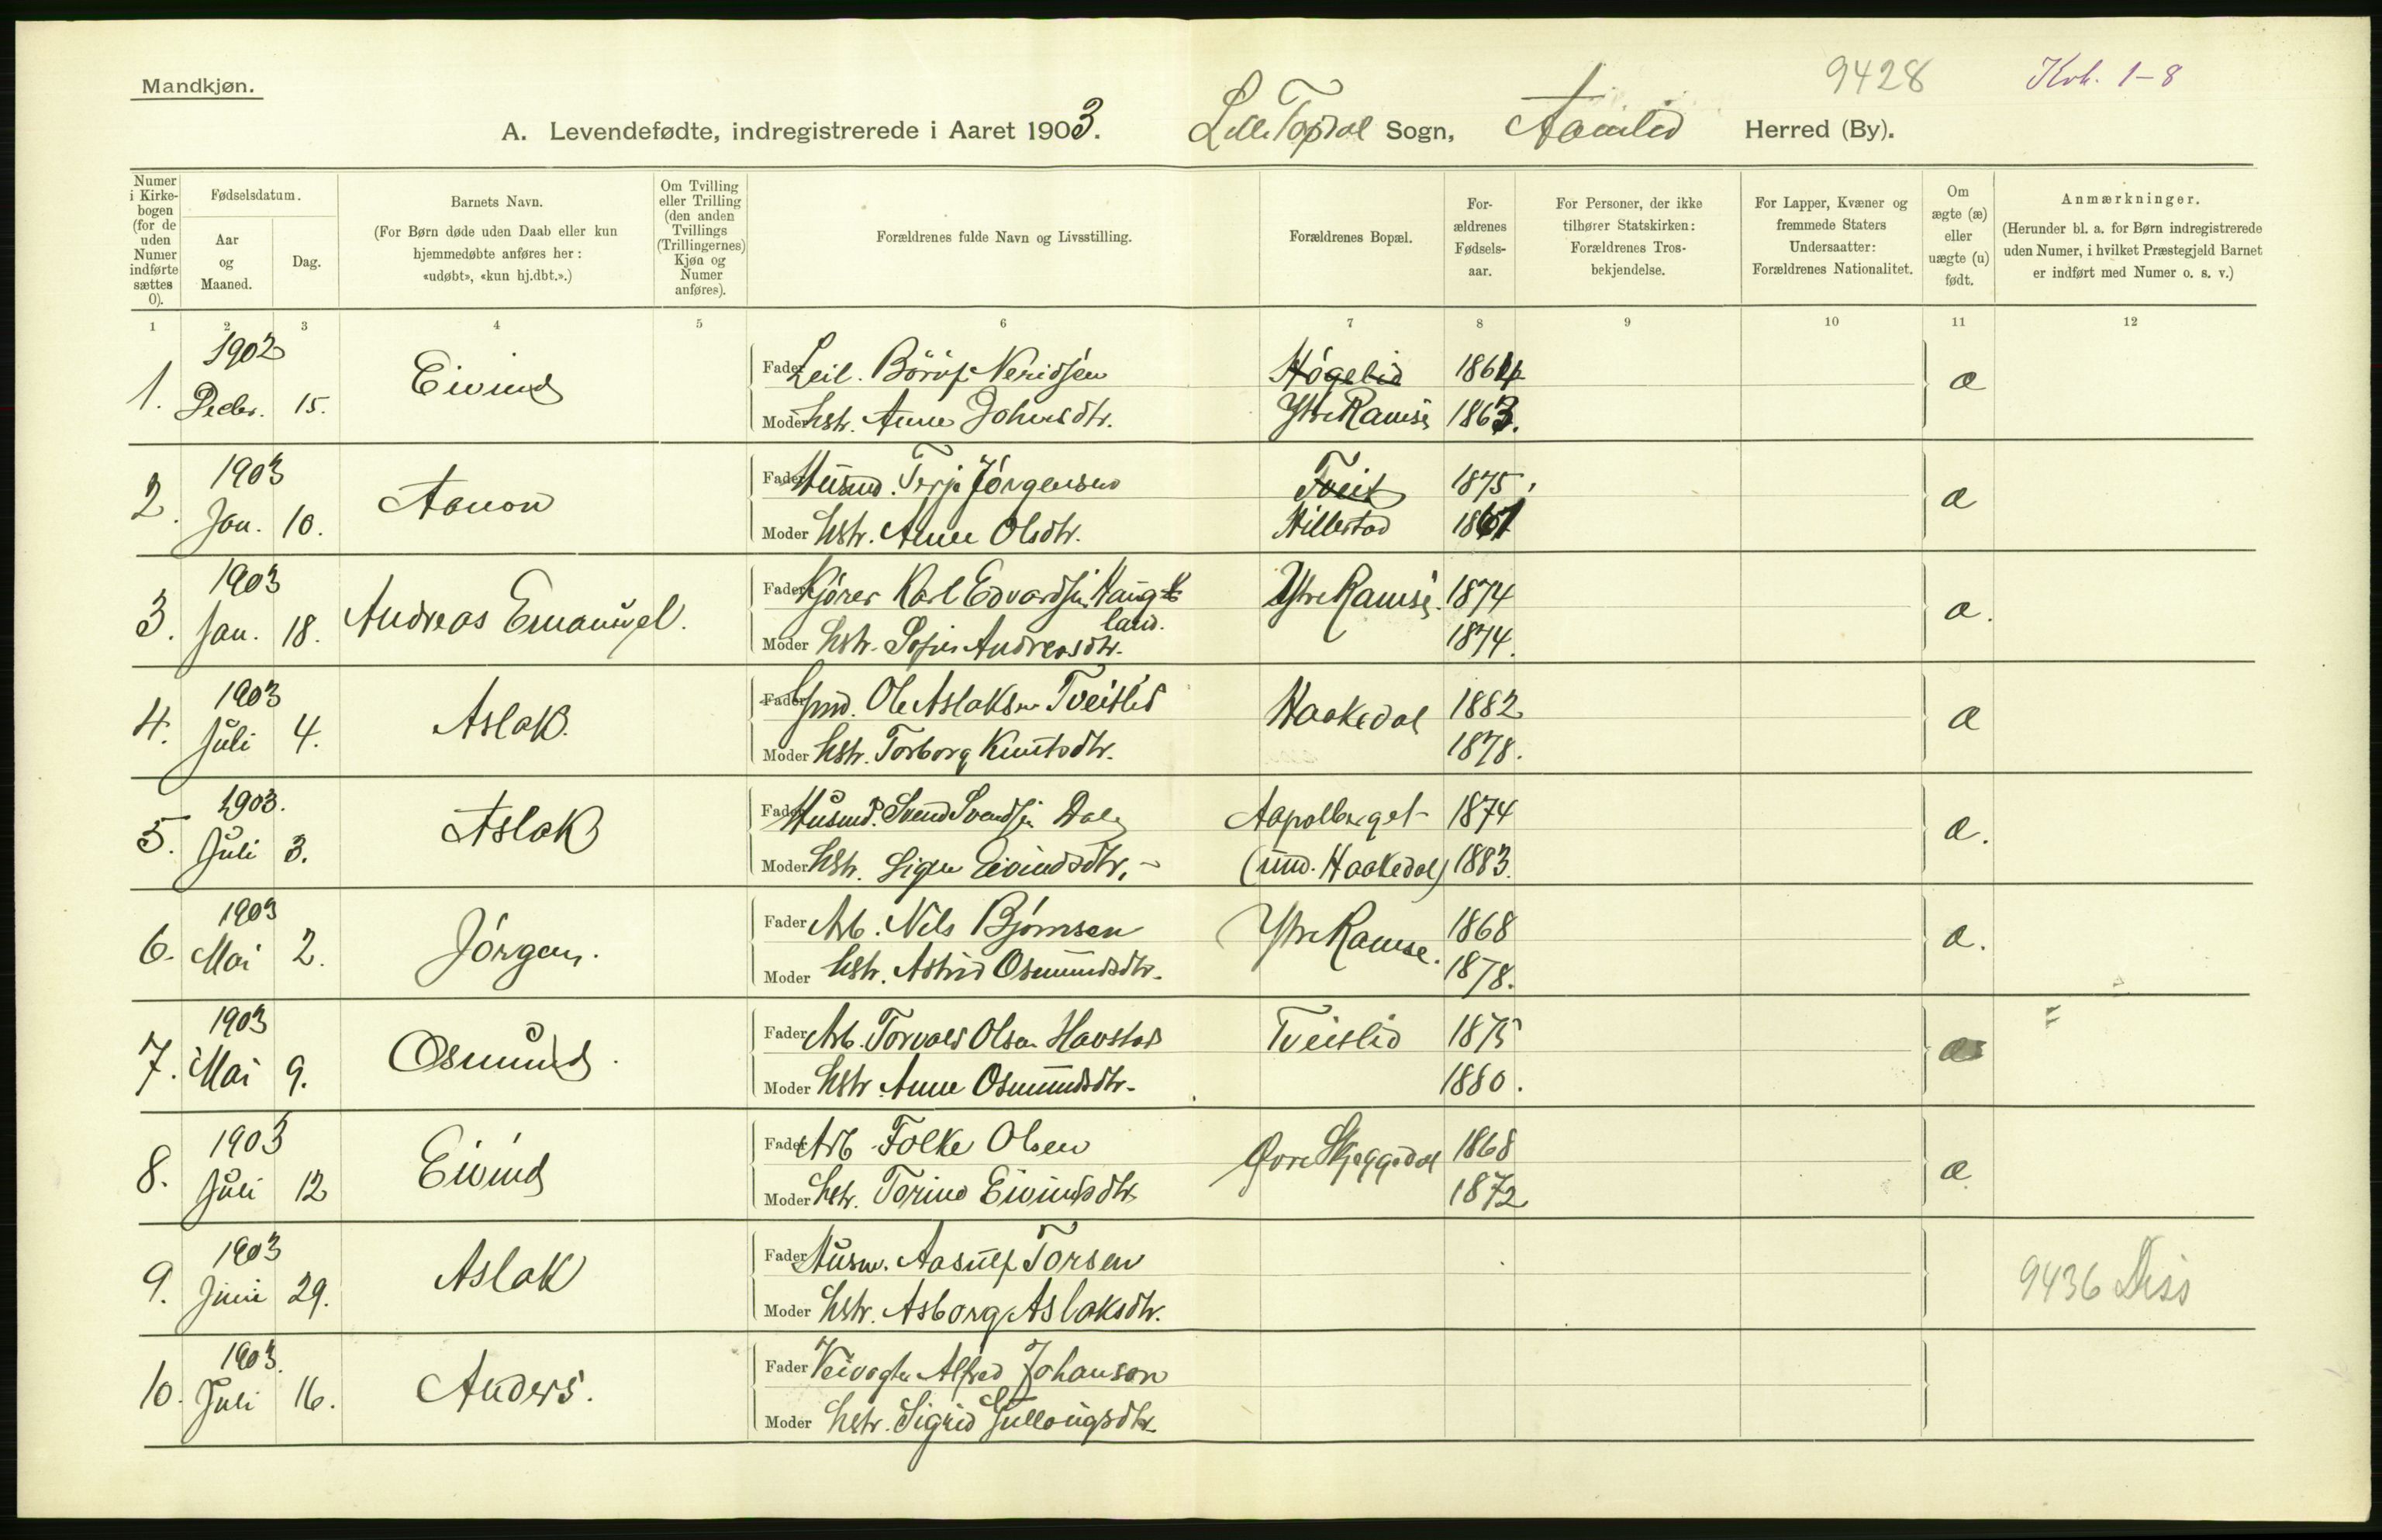 Mandkjøn.
9428
Kvh. 1-8
A. Levendefødte, indregistrerede i Aaret 1903. Lille Topdal Sogn, Aamlid Herred (By).
Numer i Kirkebogen (for de uden Numer indførte sættes 0).
Fødselsdatum.
Aar og Maaned.
Dag.
Barnets Navn.
(For Børn døde uden Daab eller kun hjemmedøbte anføres her: «udøbt», «kun hj.dbt.».)
Om Tvilling eller Trilling (den anden Tvillings (Trillingernes) Kjøn og Numer anføres).
Forældrenes fulde Navn og Livsstilling.
Forældrenes Bopæl.
For-ældrenes Fødsels-aar.
For Personer, der ikke tilhører Statskirken: Forældrenes Tros-bekjendelse.
For Lapper, Kvæner og fremmede Staters Undersaatter: Forældrenes Nationalitet.
Om ægte (æ) eller uægte (u) født.
Anmærkninger.
(Herunder bl. a. for Børn indregistrerede uden Numer, i hvilket Præstegjeld Barnet er indført med Numer o. s. v.)
1 2 3 4 5 6 7 8 9 10 11 12
1902
1. Decbr. 15. Eivind
Fader Leil. Börüf Neridsen Högelid 1864 æ
Moder hstr. Anne Johnsdtr. Ytre Ramsè 1863.
1903
2. Jan. 10. Aanon
Fader Husmd. Terje Jörgensen Tveit 1875 æ
Moder hstr. Anne Olsdtr. Hillestad 1861
1903
3. Jan. 18. Andreas Emanuel.
Fader Kjörer Karl Edvardsen Haugland. Ytre Ramsè. 1874 æ.
Moder hstr. Sofie Andreasdtr. 1874.
1903
4. Juli 4. Aslak.
Fader Gmd. Ole Aslaksen Tveitlid Haakedal 1882 æ
Moder hstr. Torborg Knutsdtr. 1878.
1903.
5. Juli 3. Aslak
Fader Husmd. Svend Svendsen Dale Aapolberget 1874 æ.
Moder hstr. Signe Eivindsdtr. (und. Haakedal) 1883.
1903
6. Mai 2. Jörgen.
Fader Arb. Nils Bjørnsen Ytre Ramse. 1868 æ.
Moder hstr. Astrid Osmundsdtr. 1878.
1903
7. Mai 9. Osmund.
Fader Arb. Torvald Olsen Havstad Tveitlid 1875 æ
Moder hstr Anne Osmundsdtr. 1880.
1903
8. Juli 12 Eivind
Fader Arb Folke Olsen Övre Skjeggedal 1868 æ
Moder hstr. Torine Eivindsdtr. 1872
1903
9. Juni 29. Aslak
Fader Husm. Aasulf Torsen
Moder hstr. Asborg Aslaksdtr.
9436 Diss
1903.
10. Juli 16. Anders.
Fader Veivogter Alfred Johansen
Moder hstr. Sigrid Gullougsdtr.